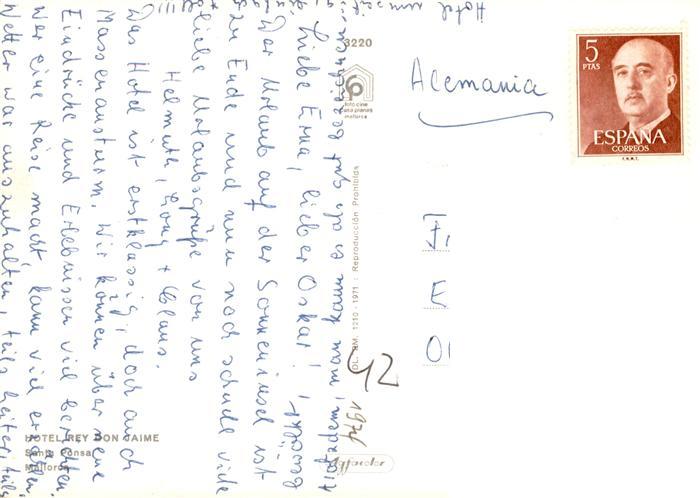 Hotel
Liebe Erna, lieber Oskar!
Der Urlaub auf der Sonneninsel ist
zu Ende und nun noch schnell viele
liebe Urlaubsgrüße von uns
Helmuth, + Claus.
Das Hotel ist erstklassig, doch auch
Massenansturm. Wir können über neue
Eindrücke und Erlebnisse viel berichten.
Wer eine Reise macht, kann viel erzählen.
Wetter war auszuhalten, teils heiter, teils
trotzdem, man kann es als gut bezeichnen
!!!!
Alemania
Fi
E
O
42
1974
5
PTAS
ESPAÑA
CORREOS
F.N.M.T.
3220
foto cine
casa planas
mallorca
DL. BM. 1210 - 1971 : Reproducción Prohibida
Agfacolor
HOTEL REY DON JAIME
Santa Ponsa
Mallorca